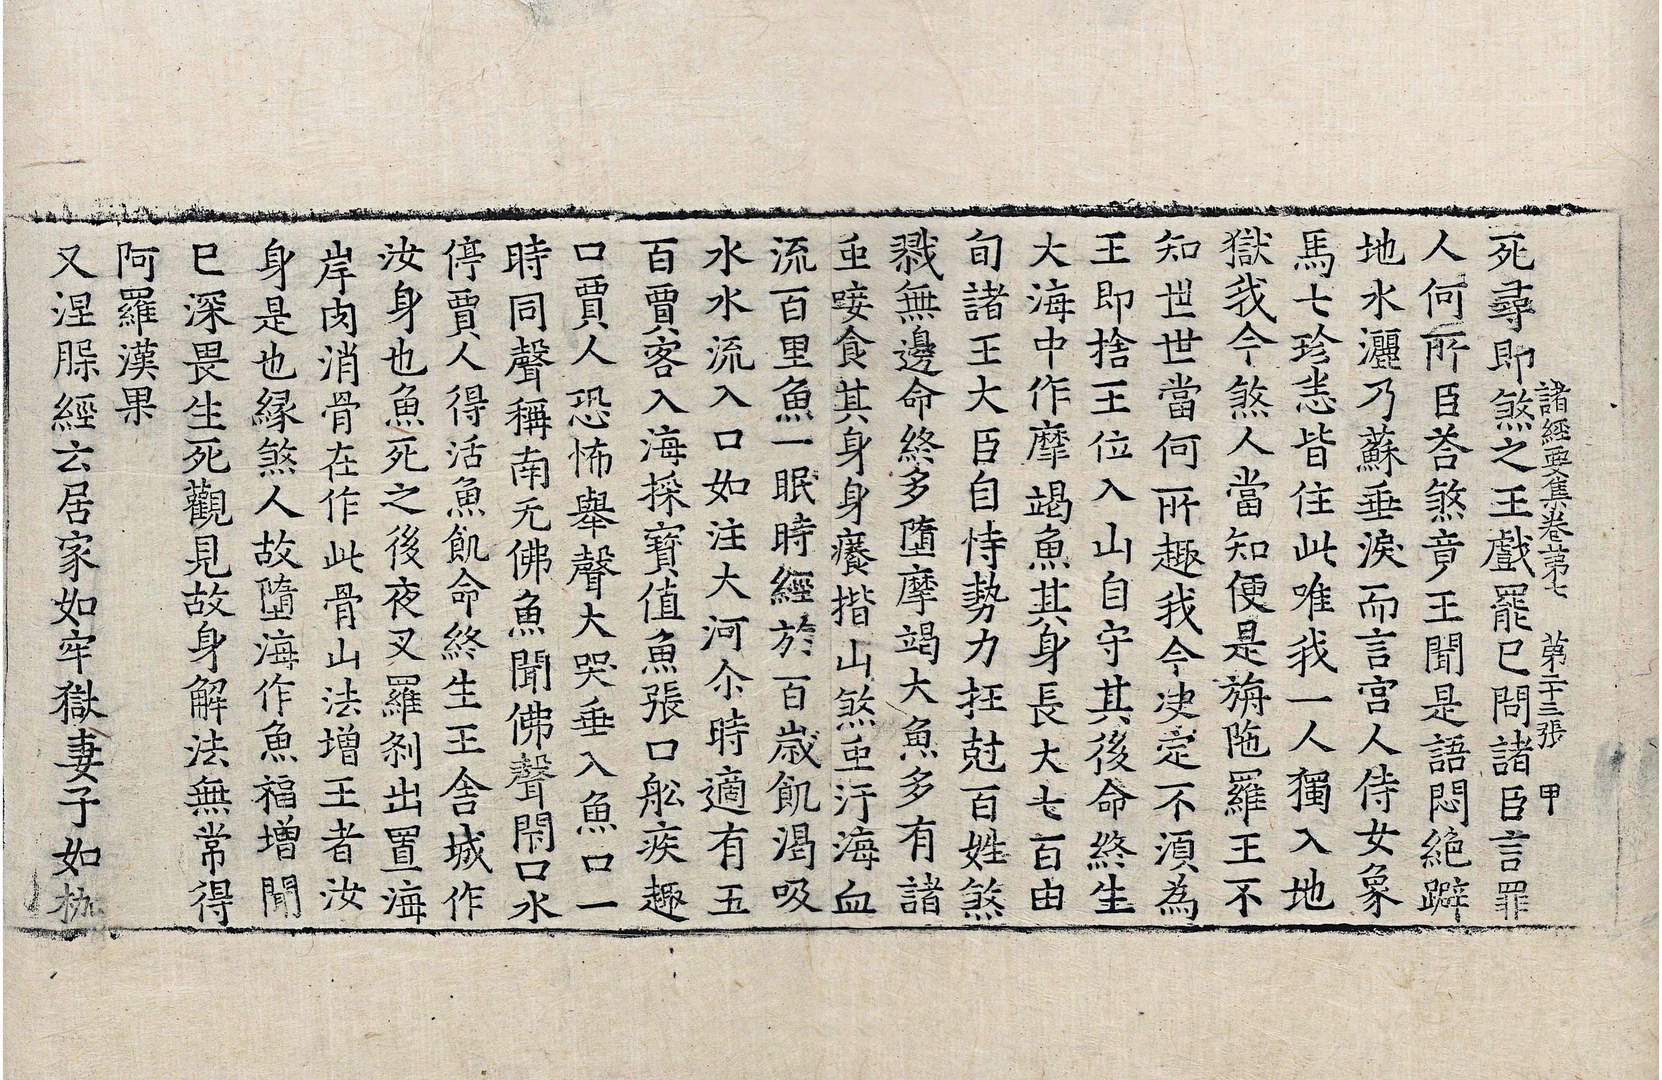 諸經要集卷第七　第二十三張　甲
死尋即煞之王戲罷已問諸臣言罪
人何所臣荅煞竟王聞是語悶絕躃
地水灑乃蘇垂淚而言宮人侍女象
馬七珍悉皆住此唯我一人獨入地
獄我今煞人當知便是旃陁羅王不
知世世當何所趣我今決定不湏為
王即捨王位入山自守其後命終生
大海中作摩竭魚其身長大七百由
旬諸王大臣自恃勢力抂尅百姓煞
戮無邊命終多墮摩竭大魚多有諸
虫唼食其身身癢揩山煞虫汙海血
流百里魚一眠時經於百歲飢渴吸
水水流入口如注大河尒時適有五
百賈客入海採寶值魚張口舩疾趣
口賈人恐怖舉聲大哭垂入魚口一
時同聲稱南无佛魚聞佛聲閇口水
停賈人得活魚飢命終生王舍城作
汝身也魚死之後夜叉羅剎出置海
岸肉消骨在作此骨山法增王者汝
身是也緣煞人故墮海作魚福增聞
已深畏生死觀見故身解法無常得
阿羅漢果
又涅槃經云居家如牢獄妻子如枷